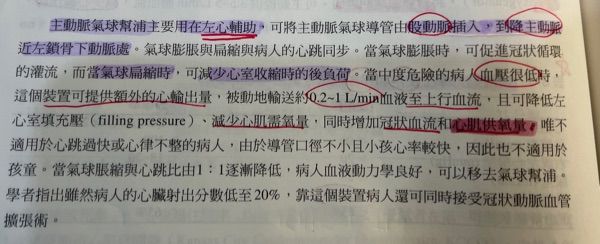 主動脈氣球幫浦主要用在左心輔助，可將主動脈氣球導管由股動脈插入，到降主動脈
近左鎖骨下動脈處。氣球膨脹與扁縮與病人的心跳同步。當氣球膨脹時，可促進冠狀循環
的灌流，而當氣球扁縮時，可減少心室收縮時的後負荷。當中度危險的病人血壓很低時，
這個裝置可提供額外的心輸出量，被動地輸送約0.2~1 L/min血液至上行血流，且可降低左
心室填充壓（filling pressure）、減少心肌需氧量，同時增加冠狀血流和心肌供氧量。唯不
適用於心跳過快或心律不整的病人，由於導管口徑不小且小孩心率較快，因此也不適用於
孩童。當氣球脹縮與心跳比由1：1逐漸降低，病人血液動力學良好，可以移去氣球幫浦。
學者指出雖然病人的心臟射出分數低至20%，靠這個裝置病人還可同時接受冠狀動脈血管
擴張術。